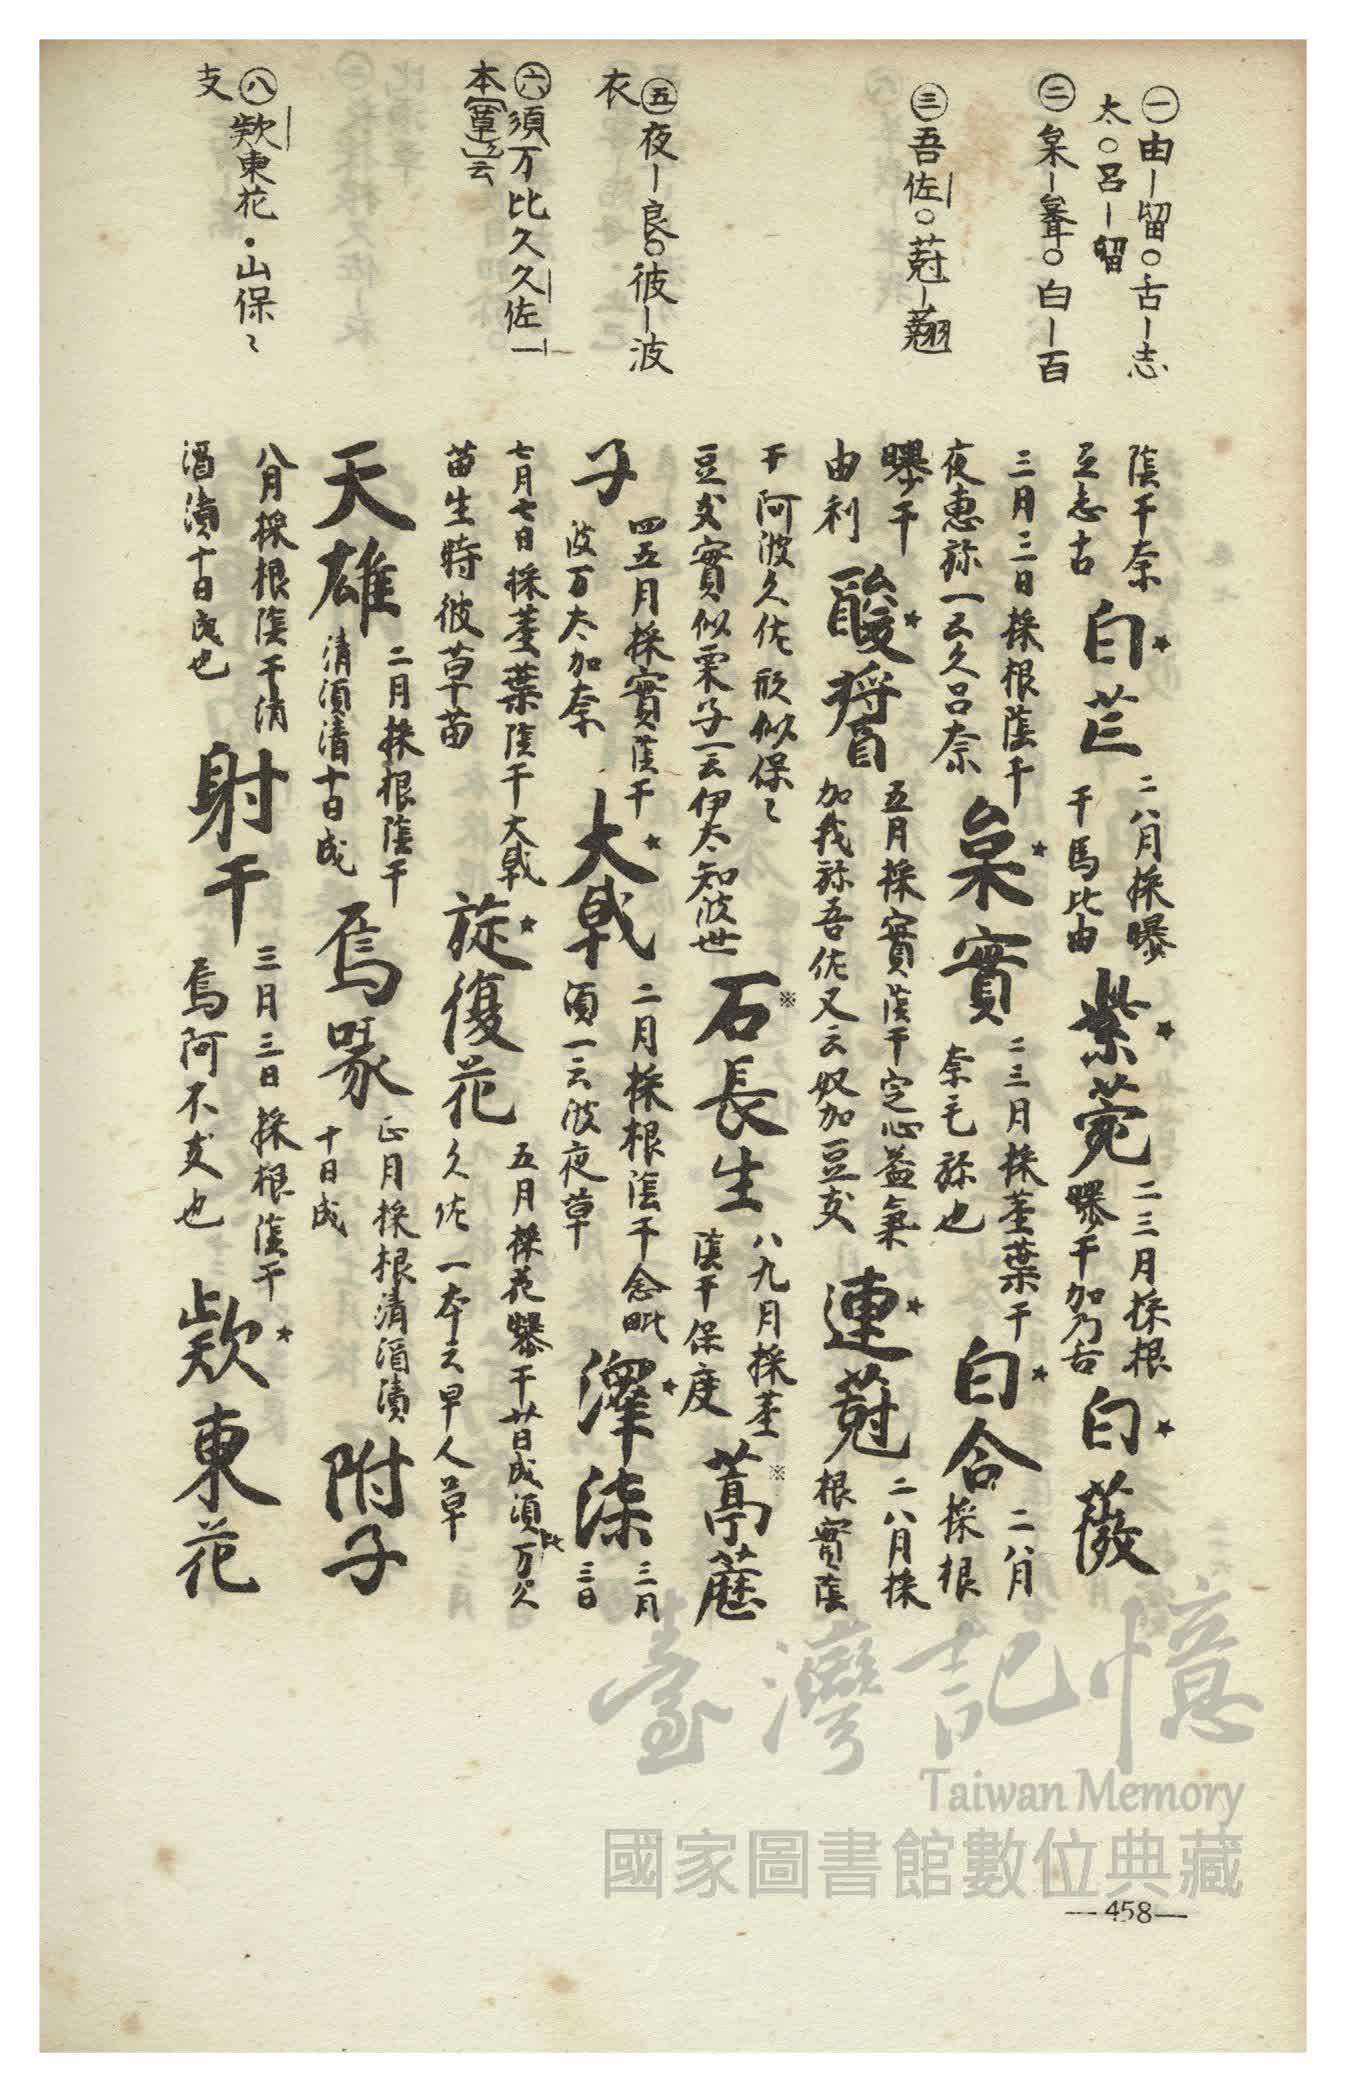 ㊀由ー留○舌ー志
太○呂ー留
㊁枲ー○白ー百
㊂吾佐○蒄ー翹
㊄夜ー良○彼ー波
衣
㊅須万比久久佐一
本(草)云
㊇欵東花・山保〻
支
陰干奈
豆志古
白芷
二八月採曝
干馬比由
紫菀
二三月採根
曝干加乃舌
白薇
三月三日採根陰干
夜惠弥一云久呂奈
枲實
二三月採莖葉干
奈毛弥也
白合
二八月
採根
曝干
由利
酸醬
五月採實陰干定心益氣
加我弥吾佐又云奴加豆支
連蒄
二八月採
根實陰
干阿波久佐形似保〻
豆支實似栗子一云伊太知波世
石長生
八九月採莖
陰干保度
葶藶
子
四五月採實陰干
波万太加奈
大戟
二月採根陰干念毗
須一云波夜草
澤柒
三月
三日
七月七日採莖葉陰干大戟
苗生時彼草苗
旋復花
五月採花曝干廿日成須万比久
久佐一本云早人草
天雄
二月採根陰干
清酒漬十日成
烏喙
正月採根清酒漬
十日成
附子
八月採根陰干清
酒漬十日成也
射干
三月三日採根陰干
烏阿不支也
欵東花
臺灣記憶
Taiwan Memory
國家圖書館數位典藏
—458—